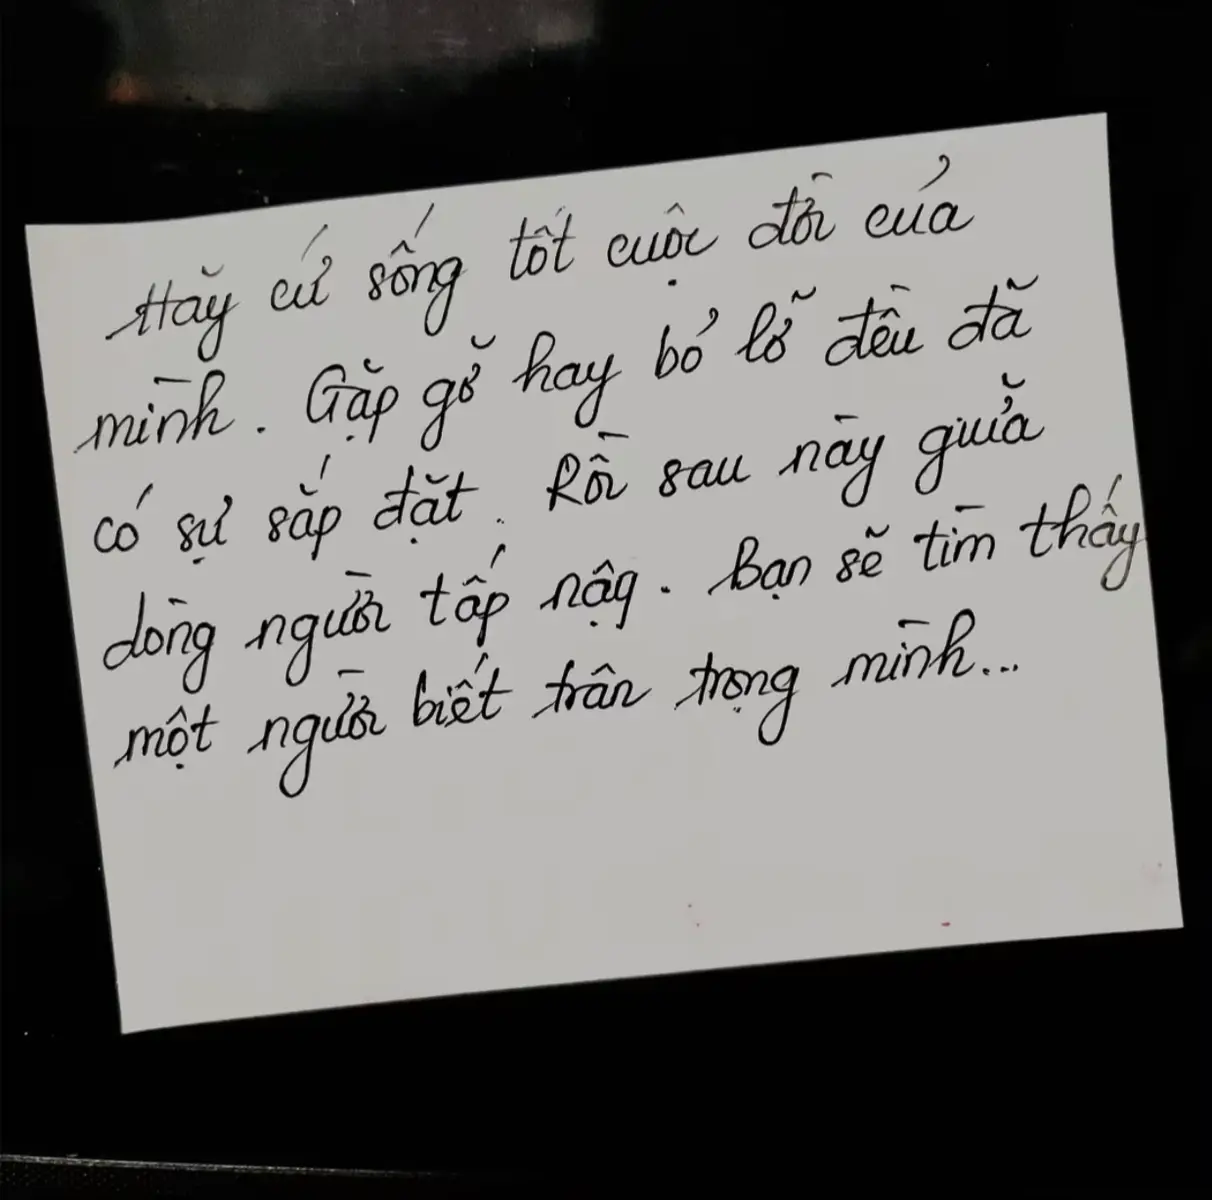 Hãy cứ sống tốt cuộc đời của
mình. Gặp gỡ hay bỏ lỡ đều đã
có sự sắp đặt. Rồi sau này giữa
dòng người tấp nập. Bạn sẽ tìm thấy
một người biết trân trọng mình...